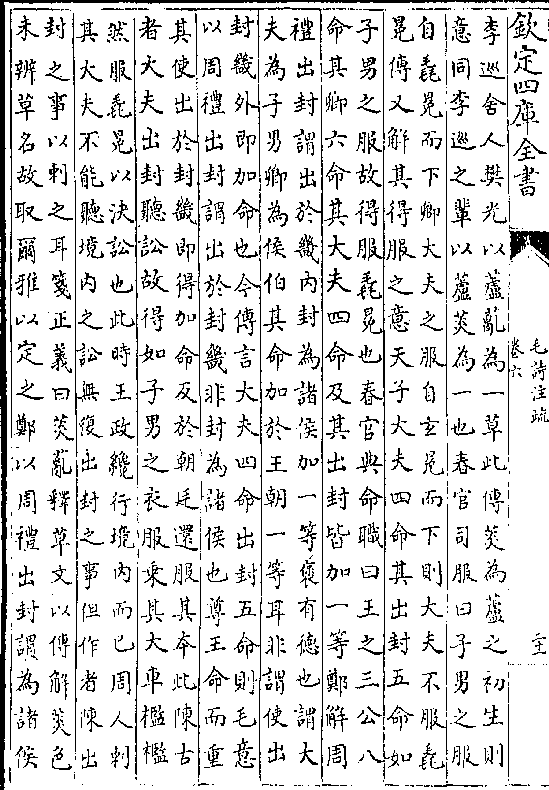 欽定四庫全書
毛詩注疏
卷六
二十
李巡舍人樊光以蘆薍為一草此傳菼為蘆之初生則
意同李巡之輩以蘆菼為一也春官司服曰子男之服
自毳冕而下卿大夫之服自玄冕而下則大夫不服毳
冕傳又解其得服之意天子大夫四命其出封五命如
子男之服故得服毳冕也春官典命職曰王之三公八
命其卿六命其大夫四命及其出封皆加一等鄭解周
禮出封謂出於畿內封為諸侯加一等襃有德也謂大
夫為子男卿為侯伯其命加於王朝一等耳非謂使出
封畿外即加命也今傳言大夫四命出封五命則毛意
以周禮出封謂出於封畿非封為諸侯也尊王命而重
其使出於封畿即得加命及於朝廷還服其本此陳古
者大夫出封聽訟故得如子男之衣服乘其大車檻檻
然服毳冕以決訟也此時王政纔行境內而已周人刺
其大夫不能聽境內之訟無復出封之事但作者陳出
封之事以刺之耳箋正義曰菼薍釋草文以傳解菼色
未辨草名故取爾雅以定之鄭以周禮出封謂為諸侯